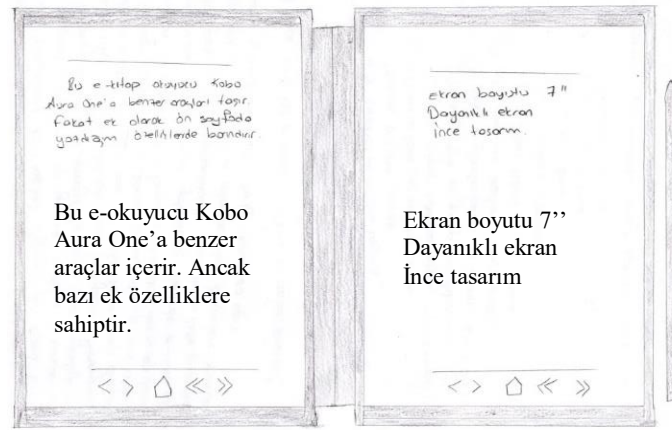 Bu e-kitap okuyucu Kobo
Aura One'a benzer araçları taşır.
Fakat ek olarak ön sayfada
yazdığım özelliklerde barındırır.
Bu e-okuyucu Kobo
Aura One’a benzer
araçlar içerir. Ancak
bazı ek özelliklere
sahiptir.
ekran boyutu 7"
Dayanıklı ekran
ince tasarım.
Ekran boyutu 7’’
Dayanıklı ekran
İnce tasarım